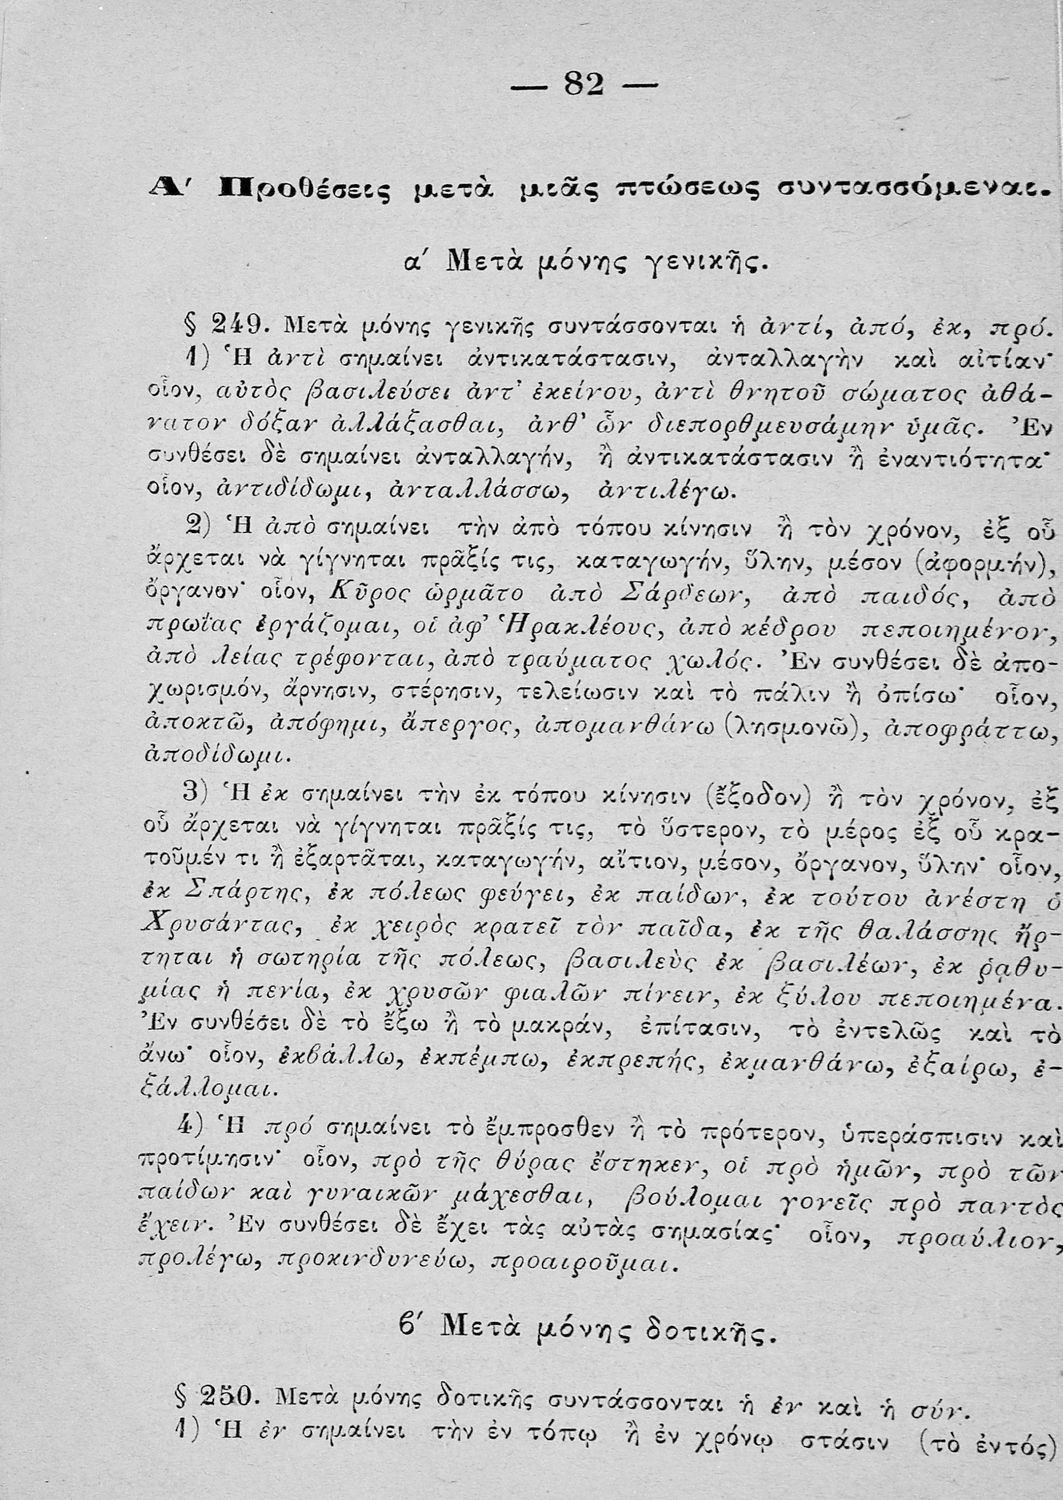 — 82 —
Α′ Προθέσεις μετὰ μιᾶς πτώσεως συντασσόμεναι.
α′ Μετὰ μόνης γενικῆς.
§ 249. Μετὰ μόνης γενικῆς συντάσσονται ἡ ἀντί, ἀπό, ἐκ, πρό.
1) Ἡ ἀντὶ σημαίνει ἀντικατάστασιν, ἀνταλλαγὴν καὶ αἰτίαν·
οἷον, αὐτὸς βασιλεύσει ἀντ' ἐκείνου, ἀντὶ θνητοῦ σώματος ἀθά-
νατον δόξαν ἀλλάξασθαι, ἀνθ' ὧν διεπορθμευσάμην ὑμᾶς. Ἐν
συνθέσει δὲ σημαίνει ἀνταλλαγήν, ἢ ἀντικατάστασιν ἢ ἐναντιότητα·
οἷον, ἀντιδίδωμι, ἀνταλλάσσω, ἀντιλέγω.
2) Ἡ ἀπὸ σημαίνει τὴν ἀπὸ τόπου κίνησιν ἢ τὸν χρόνον, ἐξ οὗ
ἄρχεται νὰ γίγνηται πρᾶξίς τις, καταγωγήν, ὕλην, μέσον (ἀφορμήν),
ὄργανον· οἷον, Κῦρος ὡρμᾶτο ἀπὸ Σάρδεων, ἀπὸ παιδός, ἀπὸ
πρωΐας ἐργάζομαι, οἱ ἀφ' Ἡρακλέους, ἀπὸ κέδρου πεποιημένον,
ἀπὸ λείας τρέφονται, ἀπὸ τραύματος χωλός. Ἐν συνθέσει δὲ ἀπο-
χωρισμόν, ἄρνησιν, στέρησιν, τελείωσιν καὶ τὸ πάλιν ἢ ὀπίσω· οἷον,
ἀποκτῶ, ἀπόφημι, ἄπεργος, ἀπομανθάνω (λησμονῶ), ἀποφράττω,
ἀποδίδωμι.
3) Ἡ ἐκ σημαίνει τὴν ἐκ τόπου κίνησιν (ἔξοδον) ἢ τὸν χρόνον, ἐξ
οὗ ἄρχεται νὰ γίγνηται πρᾶξίς τις, τὸ ὕστερον, τὸ μέρος ἐξ οὗ κρα-
τοῦμέν τι ἢ ἐξαρτᾶται, καταγωγήν, αἴτιον, μέσον, ὄργανον, ὕλην· οἷον,
ἐκ Σπάρτης, ἐκ πόλεως φεύγει, ἐκ παίδων, ἐκ τούτου ἀνέστη ὁ
Χρυσάντας, ἐκ χειρὸς κρατεῖ τὸν παῖδα, ἐκ τῆς θαλάσσης ἤρ-
τηται ἡ σωτηρία τῆς πόλεως, βασιλεὺς ἐκ βασιλέων, ἐκ ῥᾳθυ-
μίας ἡ πενία, ἐκ χρυσῶν φιαλῶν πίνειν, ἐκ ξύλου πεποιημένα.
Ἐν συνθέσει δὲ τὸ ἔξω ἢ τὸ μακράν, ἐπίτασιν, τὸ ἐντελῶς καὶ τὸ
ἄνω· οἷον, ἐκβάλλω, ἐκπέμπω, ἐκπρεπής, ἐκμανθάνω, ἐξαίρω, ἐ-
ξάλλομαι.
4) Ἡ πρό σημαίνει τὸ ἔμπροσθεν ἢ τὸ πρότερον, ὑπεράσπισιν καὶ
προτίμησιν· οἷον, πρὸ τῆς θύρας ἕστηκεν, οἱ πρὸ ἡμῶν, πρὸ τῶν
παίδων καὶ γυναικῶν μάχεσθαι, βούλομαι γονεῖς πρὸ παντὸς
ἔχειν. Ἐν συνθέσει δὲ ἔχει τὰς αὐτὰς σημασίας· οἷον, προαύλιον,
προλέγω, προκινδυνεύω, προαιροῦμαι.
β′ Μετὰ μόνης δοτικῆς.
§ 250. Μετὰ μόνης δοτικῆς συντάσσονται ἡ ἐν καὶ ἡ σύν.
1) Ἡ ἐν σημαίνει τὴν ἐν τόπῳ ἢ ἐν χρόνῳ στάσιν (τὸ ἐντός)